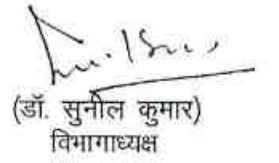 (डॉ. सुनील कुमार)
विभागाध्यक्ष